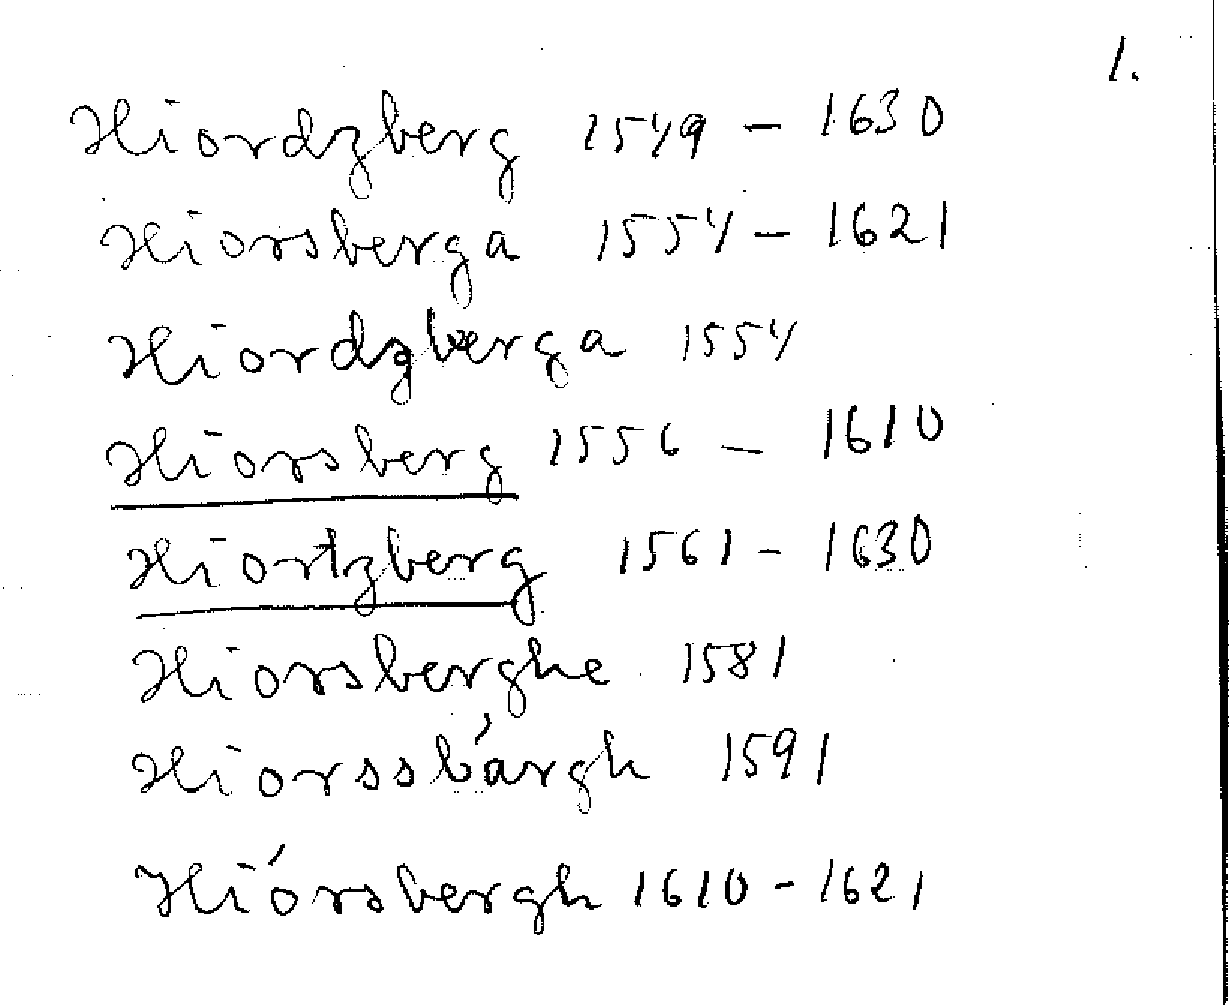 1.
Hiordzberg 1549 – 1630
Hiorsberga 1554 – 1621
Hiordzberga 1554
Hiorsberg 1556 – 1610
Hiortzberg 1561 – 1630
Hiorsberghe 1581
Hiorssbárgh 1591
Hiórsbergh 1610 - 1621